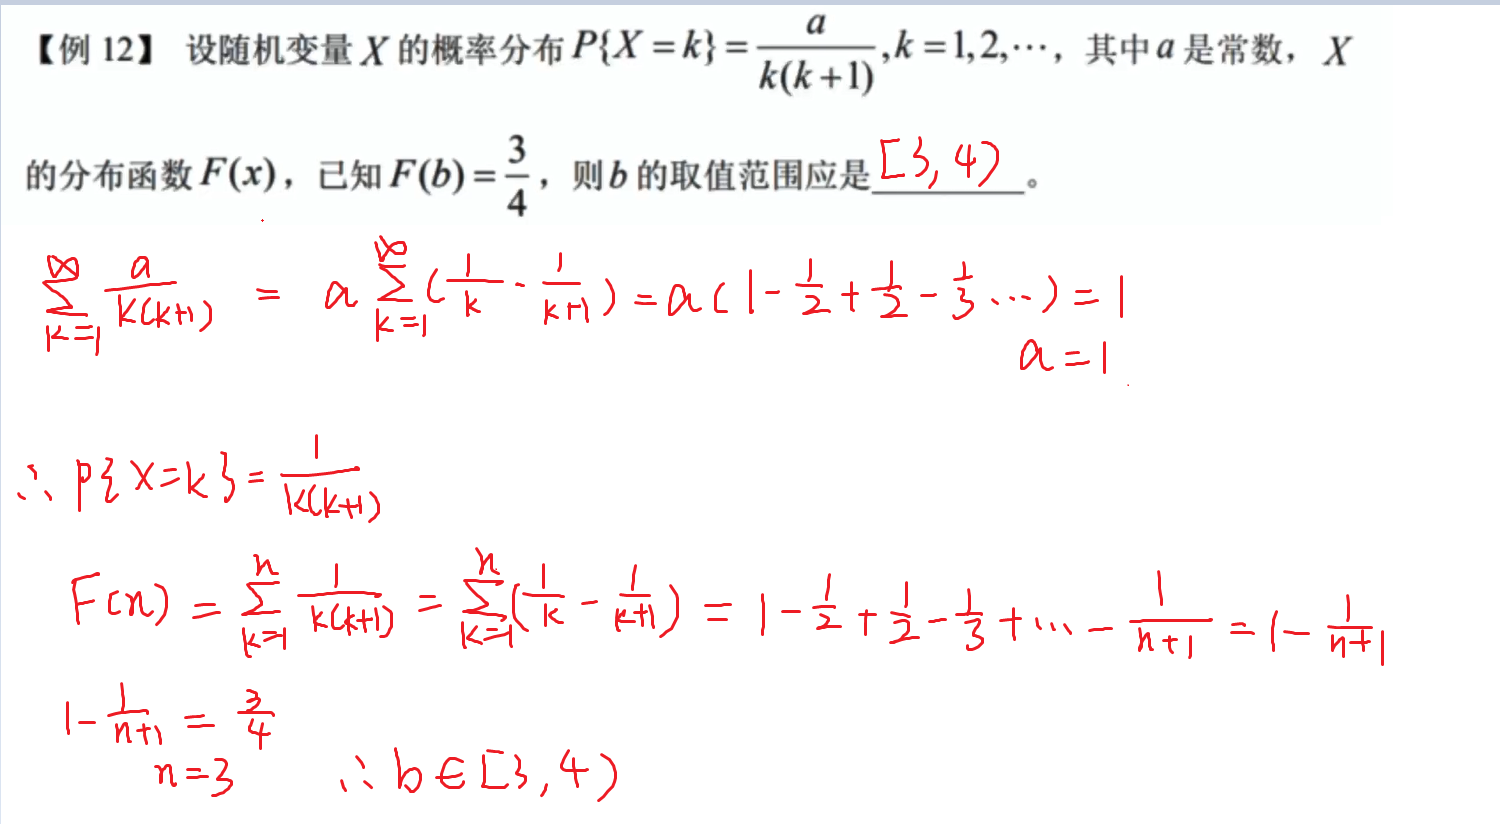 【例 12】 设随机变量 X 的概率分布 P{X = k} = a/(k(k+1)), k = 1, 2, ⋯, 其中 a 是常数, X
的分布函数 F(x), 已知 F(b) = 3/4, 则 b 的取值范围应是 [3, 4) 。
∑_{k=1}^{∞} a/(k(k+1)) = a ∑_{k=1}^{∞} (1/k - 1/(k+1)) = a(1 - 1/2 + 1/2 - 1/3 ⋯) = 1
a = 1
∴ P{X=k} = 1/(k(k+1))
F(n) = ∑_{k=1}^{n} 1/(k(k+1)) = ∑_{k=1}^{n} (1/k - 1/(k+1)) = 1 - 1/2 + 1/2 - 1/3 + ⋯ - 1/(n+1) = 1 - 1/(n+1)
1 - 1/(n+1) = 3/4
n = 3 ∴ b ∈ [3, 4)